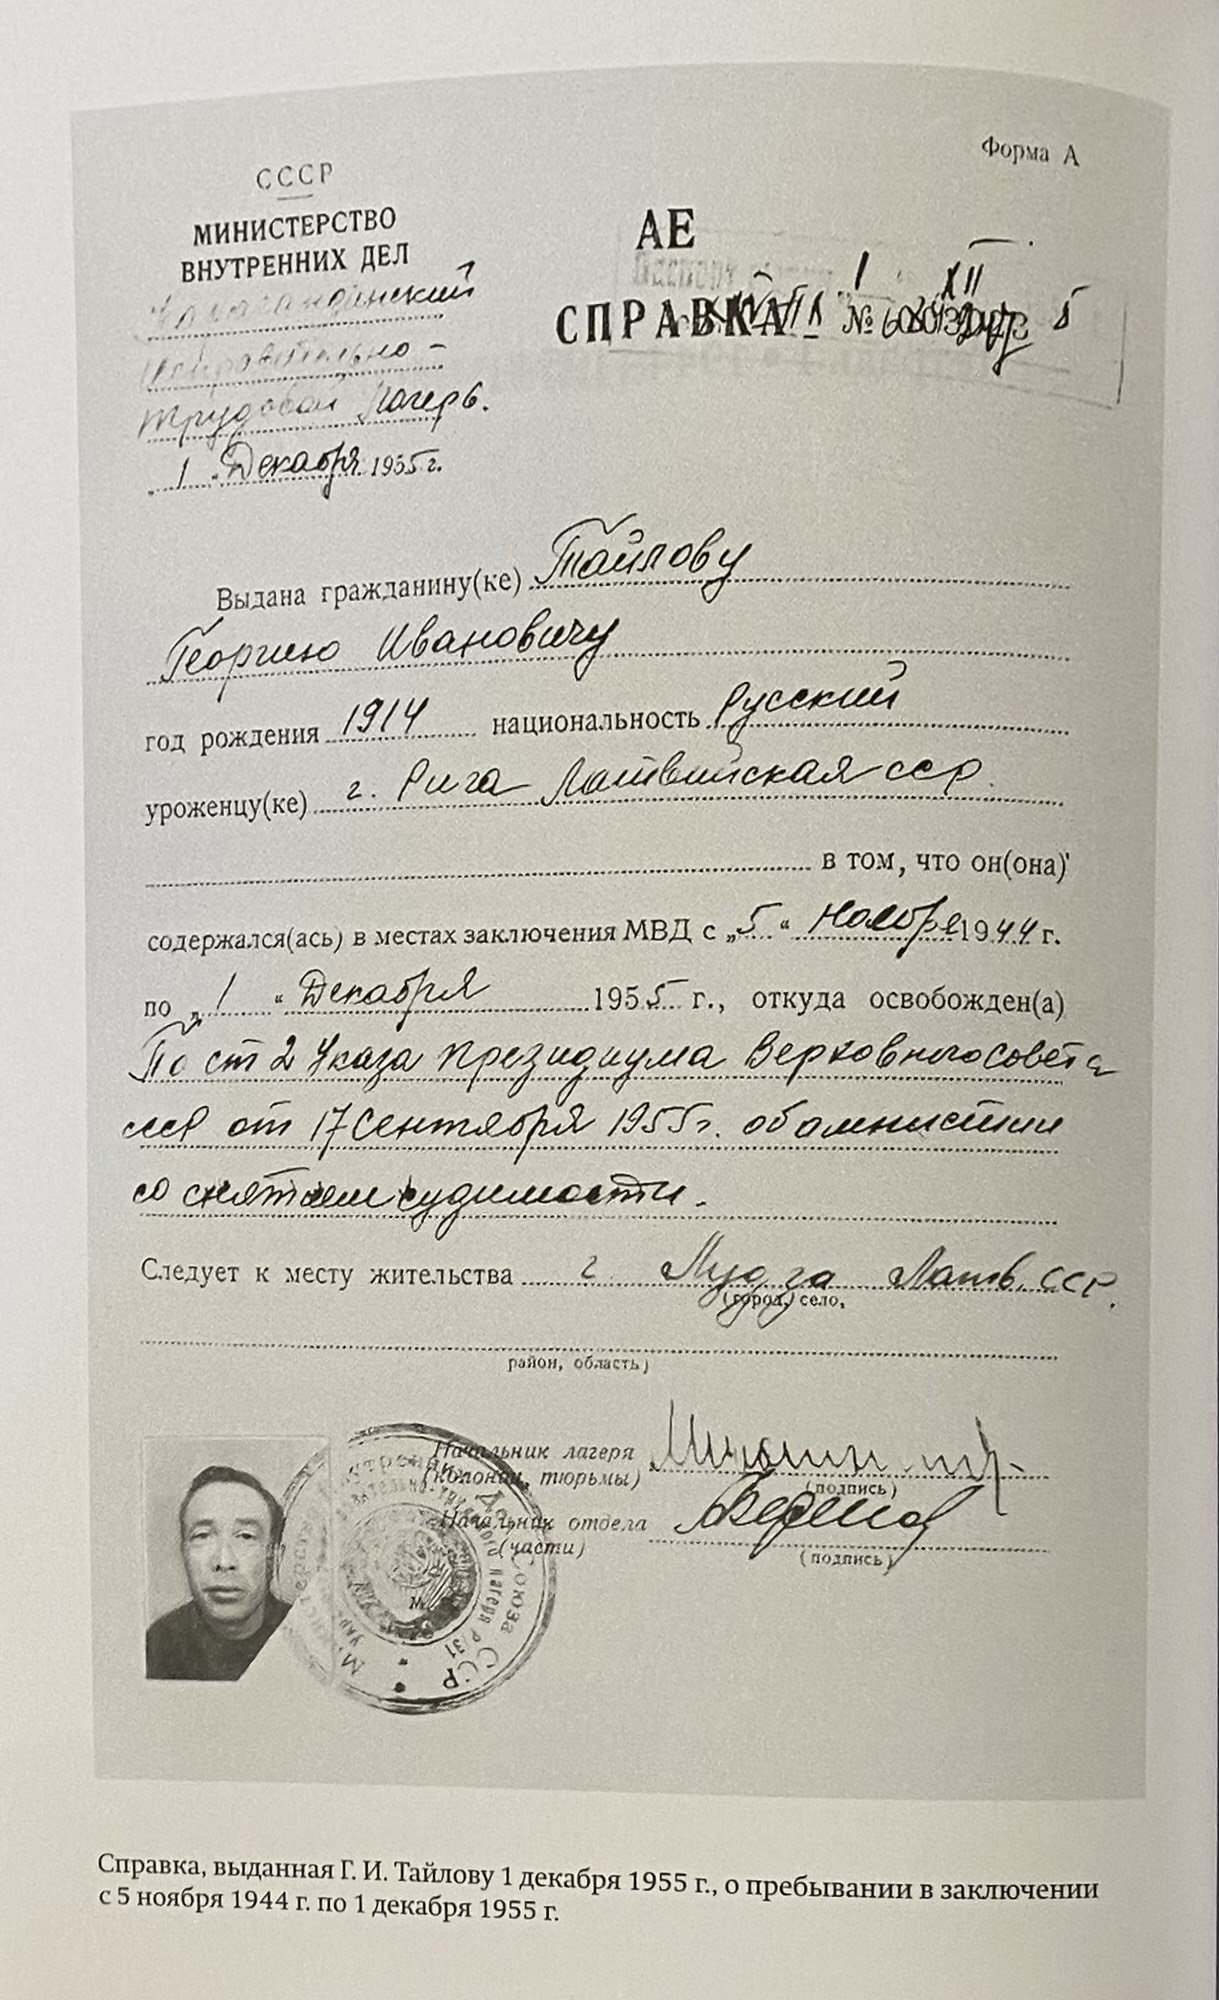 Форма А
СССР
МИНИСТЕРСТВО
ВНУТРЕННИХ ДЕЛ
Карагандинский
исправительно-
трудовой лагерь.
„ 1 „ Декабря 1955 г.
АЕ
СПРАВКА №
1 XII
Выдана гражданину(ке) Тайлову
Георгию Ивановичу
год рождения 1914 национальность Русский
уроженцу(ке) г. Рига Латвийская сср.
в том, что он(она)
содержался(ась) в местах заключения МВД с „5“ Ноября 1944 г.
по „1“ Декабря 1955 г., откуда освобожден(а)
По ст 2 Указа Президиума Верховного совета
ссср от 17 Сентября 1955 г. об амнистии
со снятием судимости.
Следует к месту жительства г. Лудза Латв. ССР.
(город, село,
район, область)
Начальник лагеря
(колонии, тюрьмы)
(подпись)
Начальник отдела
(части)
(подпись)
внутренних дел Союза ССР
Справка, выданная Г. И. Тайлову 1 декабря 1955 г., о пребывании в заключении
с 5 ноября 1944 г. по 1 декабря 1955 г.